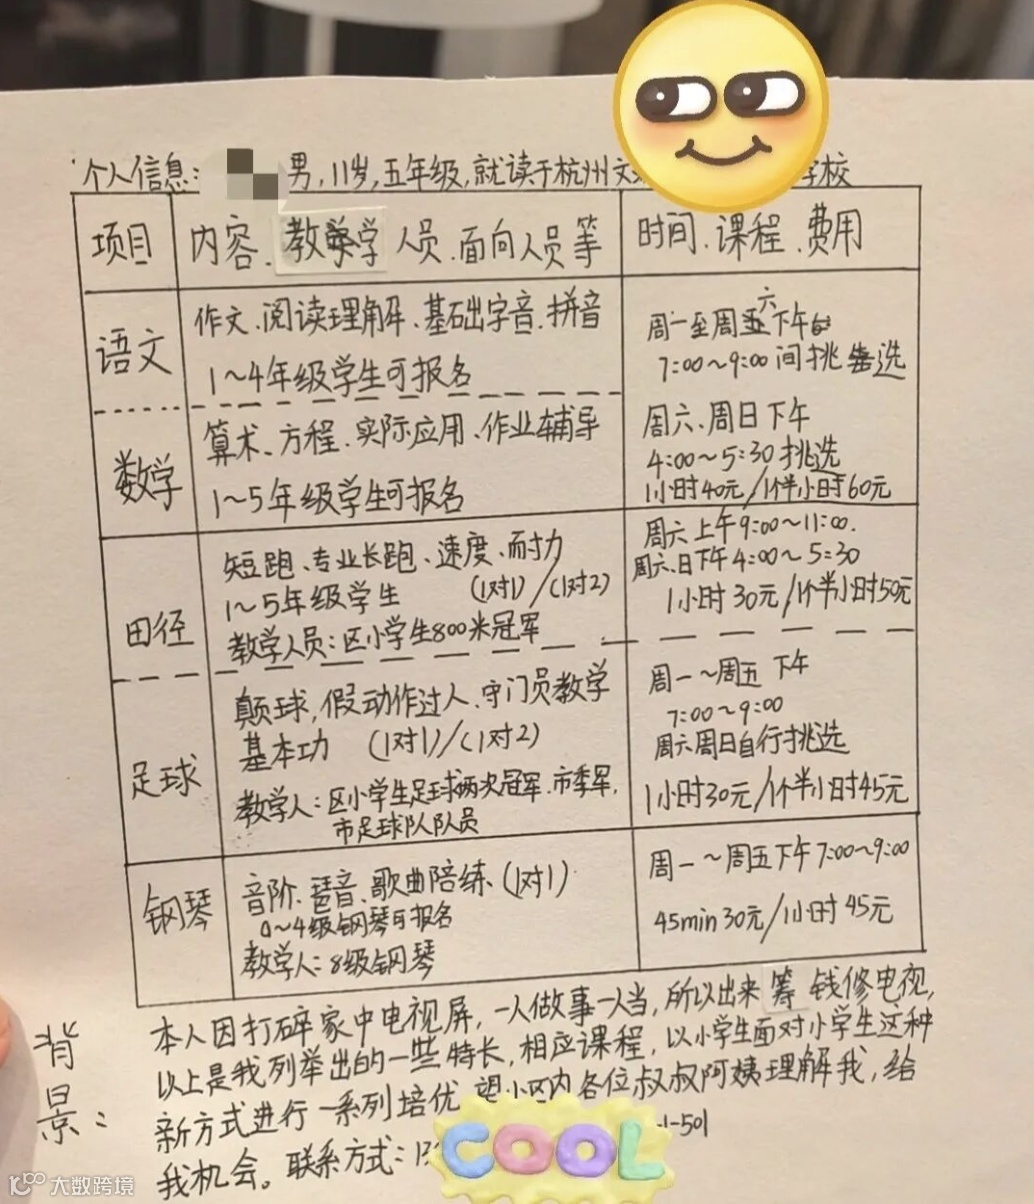 个人信息: 男,11岁,五年级,就读于杭州文 学校
项目
内容、教学人员、面向人员等
时间、课程、费用
语文
作文、阅读理解、基础字音、拼音
1~4年级学生可报名
周一至周六下午
7:00~9:00间挑选
数学
算术、方程、实际应用、作业辅导
1~5年级学生可报名
周六、周日下午
4:00~5:30挑选
1小时40元/1个半小时60元
田径
短跑、专业长跑、速度、耐力
1~5年级学生 (1对1)/(1对2)
教学人员:区小学生800米冠军
周六上午9:00~11:00.
周六、日下午4:00~5:30
1小时30元/1个半小时50元
足球
颠球,假动作过人、守门员教学
基本功 (1对1)/(1对2)
教学人:区小学生足球两次冠军.市季军,
市足球队队员
周一~周五下午
7:00~9:00
周六周日自行挑选
1小时30元/1个半小时45元
钢琴
音阶、琶音、歌曲陪练、(1对1)
0~4级钢琴可报名
教学人:8级钢琴
周一~周五下午7:00~9:00
45min30元/1小时45元
背景:
本人因打碎家中电视屏,一人做事一人当,所以出来筹钱修电视,
以上是我列举出的一些特长,相应课程,以小学生面对小学生这种
新方式进行一系列培优 望小区内各位叔叔阿姨理解我,给
我机会。联系方式:13 1-501
COOL
大数跨境